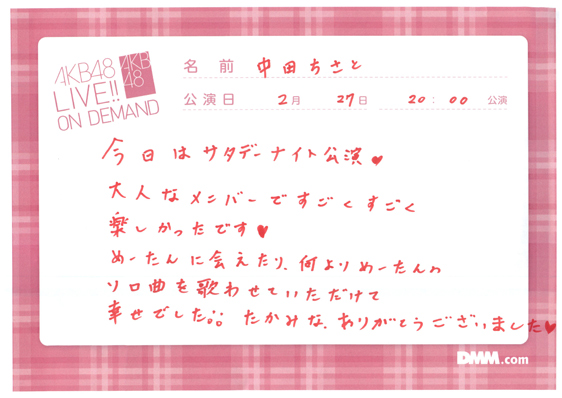 AKB48
LIVE!!
ON DEMAND
AKB
48
名 前 中田ちさと
公演日 2月 27日 20:00 公演
今日はサタデーナイト公演♥
大人なメンバーですごくすごく
楽しかったです♥
めーたんに会えたり、何よりめーたんの
ソロ曲を歌わせていただけて
幸せでした。。たかみな、ありがとうございました♥
DMM.com